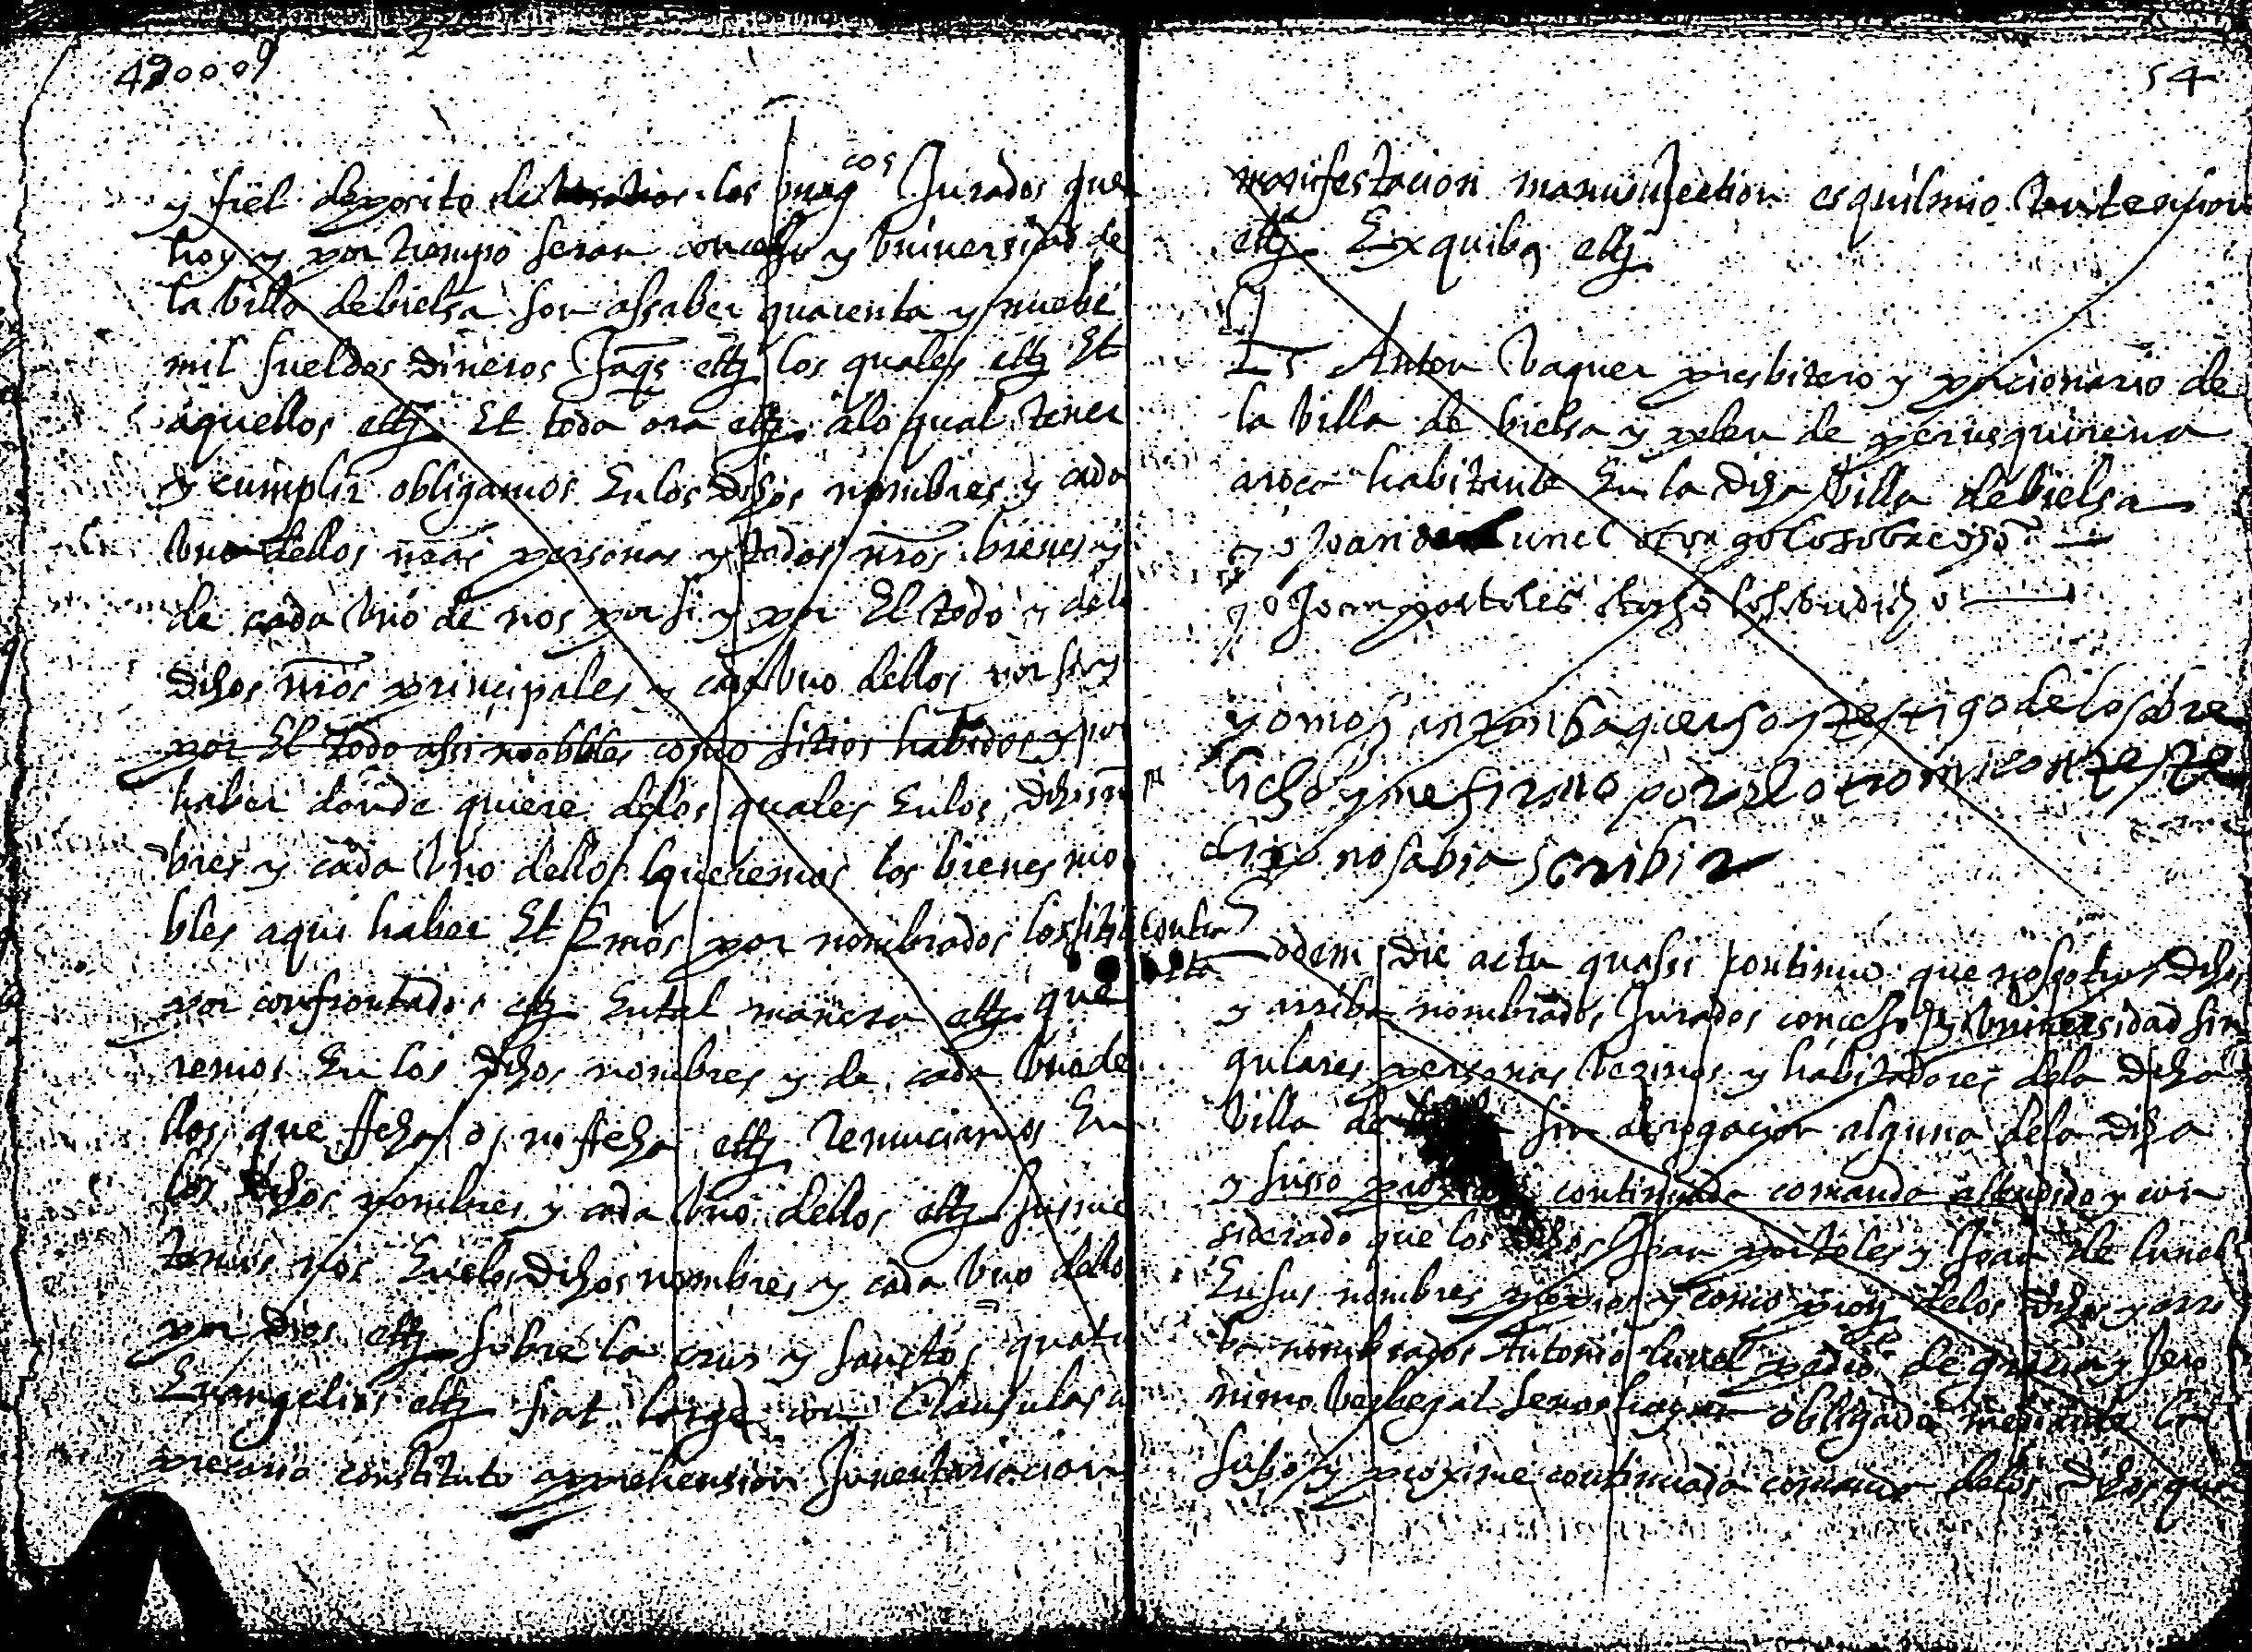 49000 s
y fiel deposito de los mag^cos Jurados que
hoy y por tiempo seran concejo y Universidad de
la Villa de bielsa son assaber quarenta y nuebe
mil sueldos dineros Jaqs ettz los quales ettz Et
aquellos ettz Et toda ora ettz alo qual tener
y cumplir obligamos En los dihos nombres y cada
Uno dellos nras personas y todos nros bienes y
de cada Uno de nos por si y por El todo y de los
dihos nros principales y cada Uno dellos por si y
por El todo assi mobles como sitios habidos y por
haber donde quiere delos quales Enlos dihos nom
bres y cada Uno dellos queremos los bienes mo
bles aqui haber Et por nombrados los sitios
por confrontados ettz En tal manera ettz que
remos En los dihos nombres y de cada Uno de
llos que fecha o no fecha ettz Renunciamos En
los dihos nombres y cada Uno dellos ettz Jusme
temos nos En los dihos nombres y cada Uno dellos
por dios ettz sobre la cruz y sanctos quatro
Evangelios ettz fiat large con Clausulas
precario constituto apprehension Inventariacion
54
manifestacion esquilmio
ettz Ex quibus ettz
Ts Anton Vaquer presbitero y porcionario de
la Villa de bielsa y de
habitante En la diha Villa de bielsa
yo Joan de Lunel otorgo lo sobredicho
yo Joan portoles otorgo lo sobredicho
yo mosen anton baquer so y testigo de lo sobre
dicho y me firmo por el otro mi conteste
dixo no sabia scribir
Eodem die actu quassi continuo que nosotros dihos
y arriba nombrados Jurados concejo y Universidad sin
gulares personas Vezinos y habitadores dela diha
Villa de sin derogacion alguna dela diha
y suso continuada comanda attendido y con
siderado que los dihos Joan portoles y Joan de lunel
En sus nombres propios y como de los dihos y arri
ba nombrados Antonio lunel de gracia y Jero
nimo Besbegal obligado mediante la
suso y proxime continuada comanda delos dihos